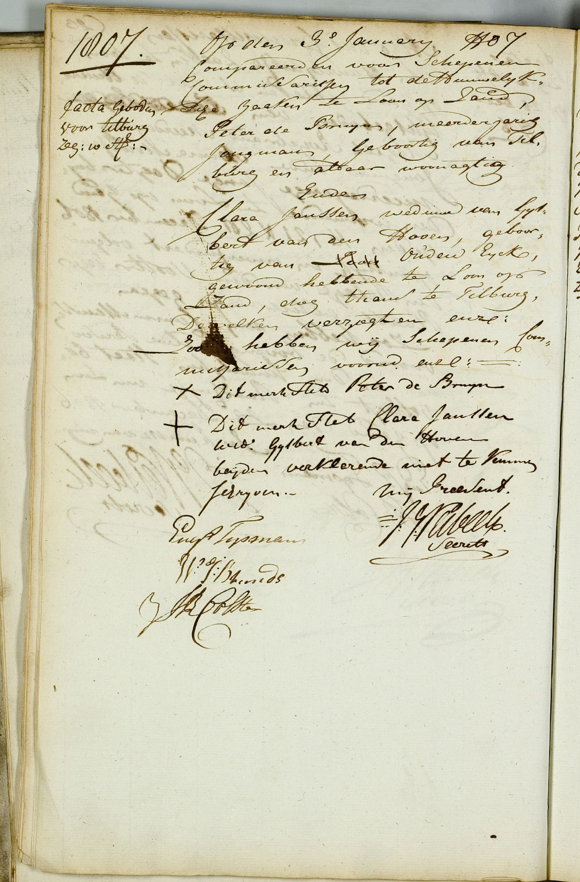 1807.
Op den 3e January 1807
Compareerden voor Schepenen
Commissarissen tot de Huuwelyk-
sche Zaaken te Loon op Zand,
facta geboden
voor tilburg
Peter de Bruyn, meerderjarig
Jongman geboortig van Til-
burg en aldaar woonagtig
Enders
Clara Janssen weduwe van Gys-
bert van den Hoven, geboor-
tig van Ouden Eyck,
gewoond hebbende te Loon op
Zand, dog thans te Tilburg,
Dewelken verzogten enz:
Zoo hebben wij Schepenen Com-
missarissen voornd. enz:
X Dit merk stelt Peter de Bruyn
+ Dit merk stelt Clara Janssen
wed. Gysbert van den Hoven
beyden verklerende niet te kunnen
schryven.
mij Present.
Secrets